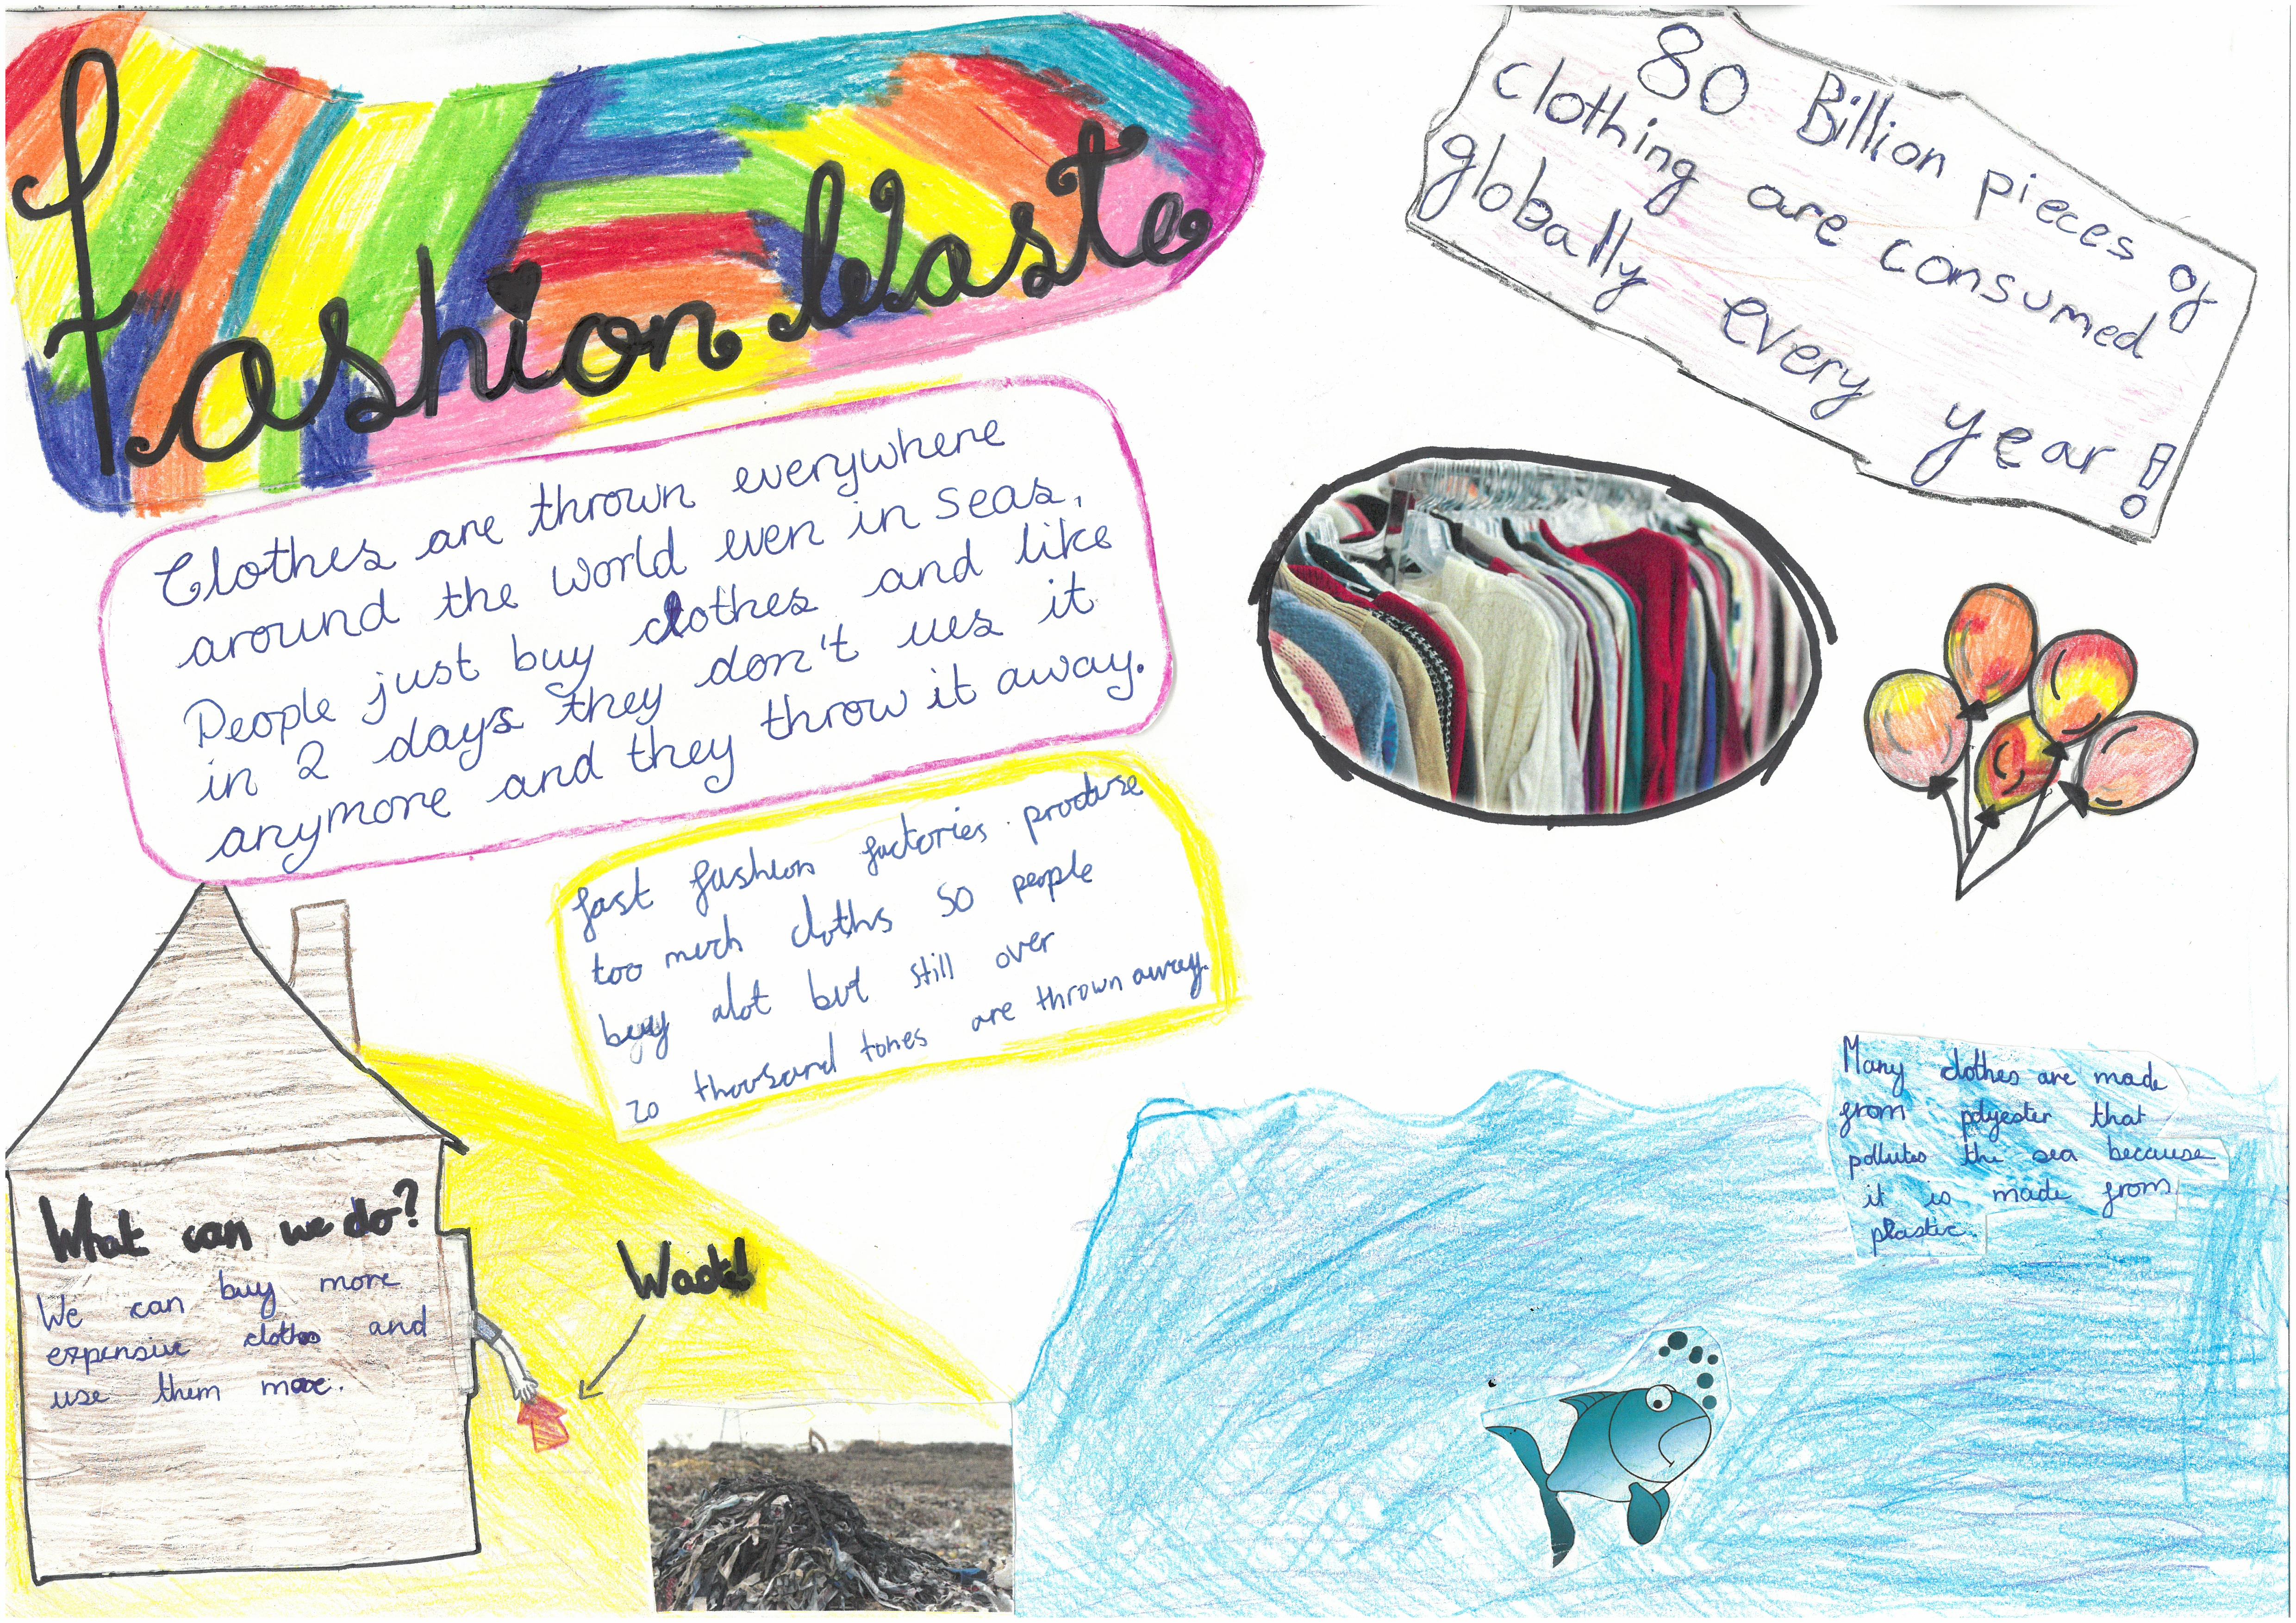 Fashion Waste
80 Billion pieces of
clothing are consumed
globally every year!
Clothes are thrown everywhere
around the world even in seas,
People just buy clothes and like
in 2 days they don't ues it
anymore and they throw it away.
fast fashion factories produse
too much cloths so people
buy alot but still over
20 thousand tones are thrown away.
Many clothes are made
from polyester that
pollutes the sea because
it is made from
plastic.
What can we do?
We can buy more
expensive clothes and
use them more.